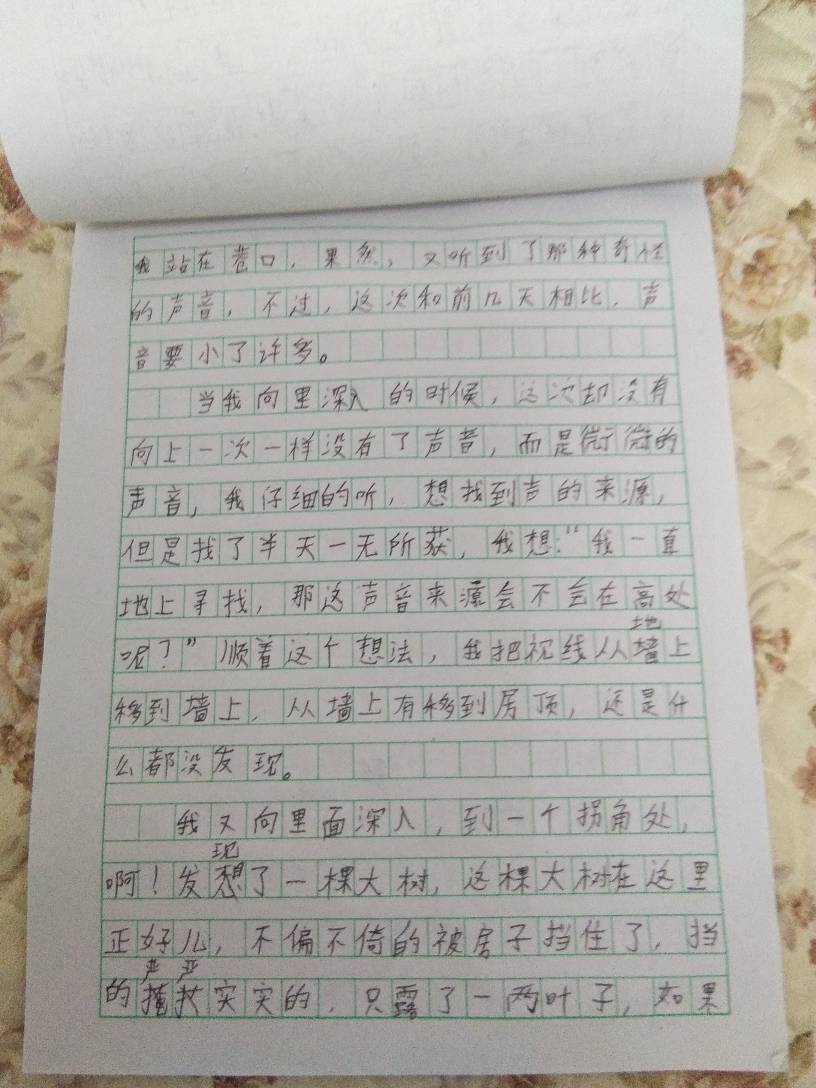 我站在巷口，果然，又听到了那种奇怪
的声音，不过，这次和前几天相比，声
音要小了许多。
当我向里深入的时候，这次却没有
向上一次一样没有了声音，而是微微的
声音，我仔细的听，想找到声的来源，
但是找了半天一无所获，我想：“我一直
地上寻找，那这声音来源会不会在高处
呢？”顺着这个想法，我把视线从地上
移到墙上，从墙上有移到房顶，还是什
么都没发现。
我又向里面深入，到一个拐角处，
啊！发现了一棵大树，这棵大树在这里
正好儿，不偏不倚的被房子挡住了，挡
的严严实实的，只露了一两叶子，如果